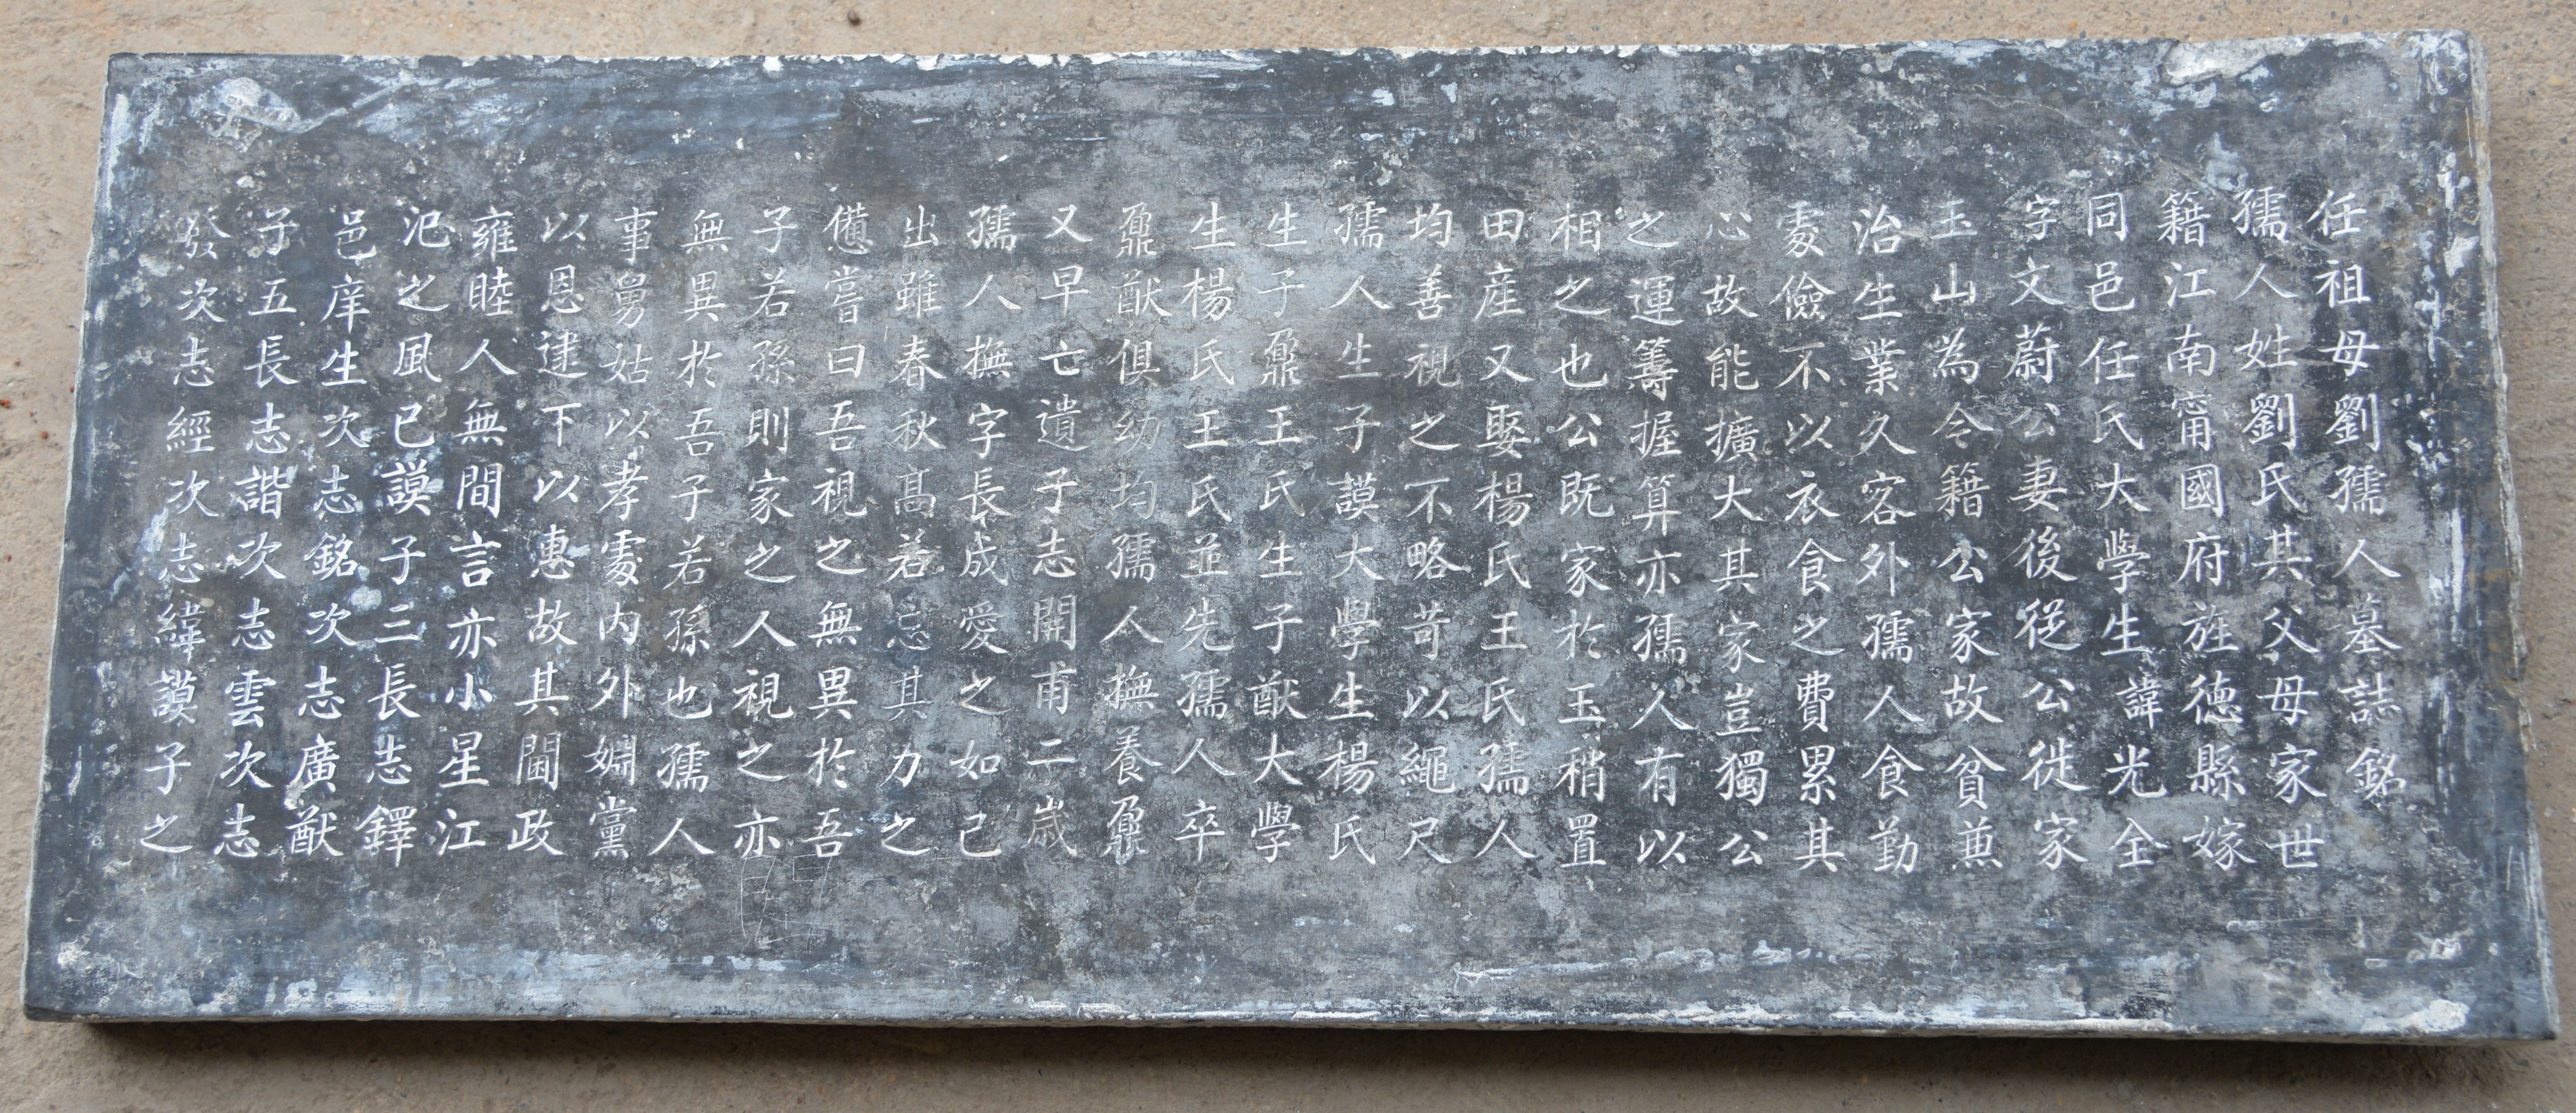 任祖母劉孺人墓誌銘
孺人姓劉氏其父母家世
籍江南甯國府旌德縣嫁
同邑任氏大學生諱光全
字文蔚公妻後從公徙家
玉山為令籍公家故貧蕉
治生業久客外孺人食勤
處儉不以衣食之費累其
心故能擴大其家豈獨公
之運籌握算亦孺人有以
相之也公既家於玉稍置
田産又娶楊氏王氏孺人
均善視之不略苛以繩尺
孺人生子謨大學生楊氏
生子鼐王氏生子猷大學
生楊氏王氏並先孺人卒
鼐猷俱幼均孺人撫養鼐
又早亡遺子志開甫二歲
孺人撫字長成愛之如己
出雖春秋高若忘其力之
憊嘗曰吾視之無異於吾
子若孫則家之人視之亦
無異於吾子若孫也孺人
事舅姑以孝處内外婣黨
以恩逮下以惠故其閫政
雍睦人無間言亦小星江
汜之風已謨子三長志鐸
邑庠生次志銘次志廣猷
子五長志諧次志雲次志
發次志經次志緯謨子之